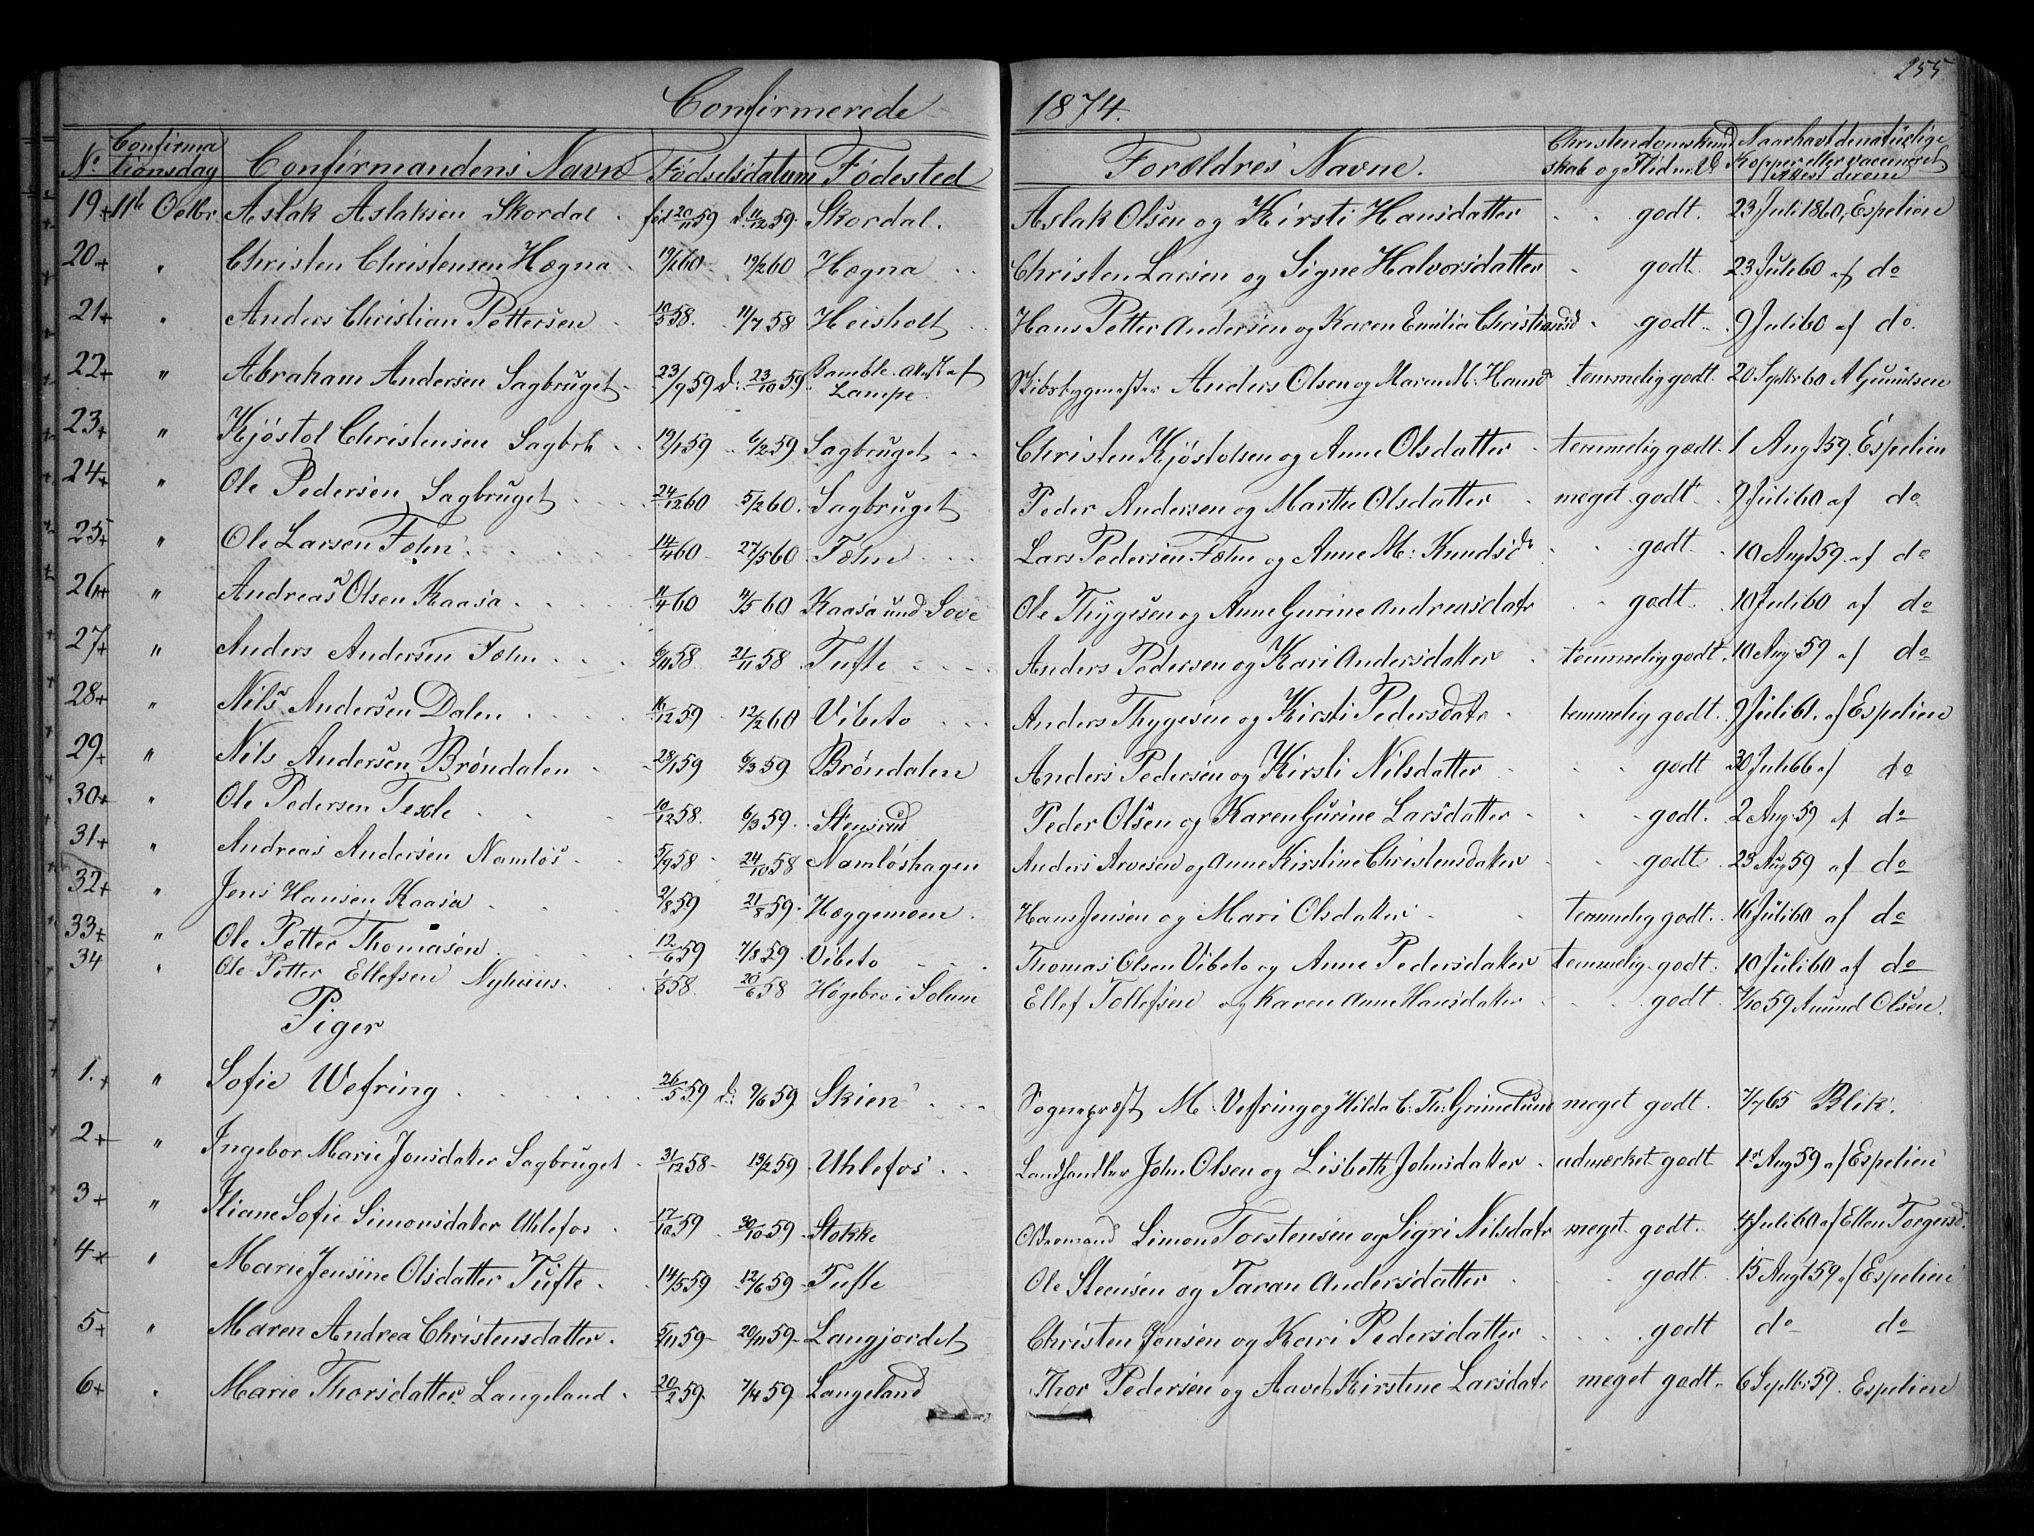 255
Confirmerede 1874.
No Confirma tionsdag Confirmandens Navn Fødselsdatum Fødested Forældres Navne. Christendomskund skab og Flid m.V. Naar havt de naturlige Kopper eller vaccineret Attest derom
19+ 11te Octbr. Aslak Aslaksen Skordal. fød 20/11 59 d. 11/12 59. Skordal. Aslak Olsen og Kirsti Hansdatter godt. 23 Juli 1860, Espelien
20+ " Christen Christensen Hægna. 17/1 60 19/2 60 Hægna Christen Larsen og Signe Halvorsdatter godt. 23 Juli 60 af do
21+ " Anders Christian Pettersen 10/5 58. 11/7 58 Heisholt Hans Petter Andersen og Karen Emilia Christiansd godt. 9 Juli 60 af do.
22+ " Abraham Andersen Sagbruget. 23/9 59 d: 23/10 59. Bamble. Attest af Lampe. Skibsbygmester Anders Olsen og Maren M: Hansdr temmelig godt. 20 Septbr 60 A Gundsen
23+ " Kjøstol Christensen Sagbrb. 19/1 59 6/2 59 Sagbruget. Christen Kjøstolsen og Anne Olsdatter temmelig godt. 1 Aug 59. Espelien
24+ " Ole Pedersen Sagbruget 24/12 60 5/2 60. Sagbruget Peder Andersen og Marthe Olsdatter meget godt. 9 Juli 60 af do
25+ " Ole Larsen Fæhn 14/4 60 27/5 60 Fæhn Lars Pedersen Fæhn og Anne M: Knudsdr godt. 10 Aug 59. af do
26+ " Andreas Olsen Kaasa. 11/4 60 11/5 60 Kaasa und Sove Ole Thygesen og Anne Gurine Andreasdatr godt. 10 Juli 60 af do
27+ " Anders Andersen Fæhn 6/11 58 21/11 58 Tufte Anders Pedersen og Kari Andersdatter temmelig godt. 10 Aug 59 af do
28+ " Nils Andersen Dalen 16/12 59 12/2 60 Vibeto Anders Thygesen og Kirsti Pedersdatr temmelig godt. 9 Juli 61. af Espelien
29+ " Nils Andersen Brøndalen 28/1 59 6/3 59 Brøndalen Anders Pedersen og Kirsti Nilsdatter godt 30 Juli 66 af do
30+ " Ole Pedersen Texle 10/12 58. 6/3 59. Stensrud Peder Olsen og Karen Gurine Larsdatter godt. 2 Aug 59 af do
31+ " Andreas Andersen Namløs 5/9 58 24/10 58 Namløshagen Anders Arvesen og Anne Kirstine Christensdatter godt. 23 Aug 59 af do
32+ " Jens Hansen Kaasa 2/8 59 21/8 59. Hæggemoen. Hans Jensen og Mari Olsdatter temmelig godt. 16 Juli 60 af do
33+ " Ole Petter Thomasen 12/6 59 7/8 59. Vibeto Thomas Olsen Vibeto og Anne Pedersdatter temmelig godt: 10 Juli 60 af do
34 " Ole Petter Ellefsen Nyhuus. 1/5 58. 20/6 58 Høgebro i Solum Ellef Tollefsen og Karen Anne Hansdatter godt. 7/10 59 Amund Olsen.
Piger
1.+ " Sofie Wefring 26/5 59 d: 9/6 59 Skien Sognepræst M. Vefring og Hilda C: Th: Grimelund meget godt. 7/7 65 Blik.
2+ " Ingebor Marie Jonsdatter Sagbruget 31/12 58 13/2 59. Uhlefos John Olsen og Lisbeth Johnsdatter udmærket godt 1ste Aug 59 af Espelien
3+ " Iliane Sofie Simonsdatter Uhlefos 17/10 59 30/10 59 Stokke Simon Torstensen og Sigri Nilsdatr meget godt. 4 Juli 60 af Ellen Torgersd.
4+ " Marie Jensine Olsdatter Tufte. 14/5 59 12/6 59 Tufte Ole Steensen og Taran Andersdatter godt. 15 Aug 59 af Espelien
5+ " Maren Andrea Christensdatter. 5/11 59 20/11 59 Langjordet Christen Jensen og Kari Pedersdatter godt do do
6+ " Marie Thorsdatter Langeland. 20/2 59. 7/4 59 Langeland Thor Pedersen og Aavet Kirstine Larsdatr meget godt. 6 Septbr 59. Espelien